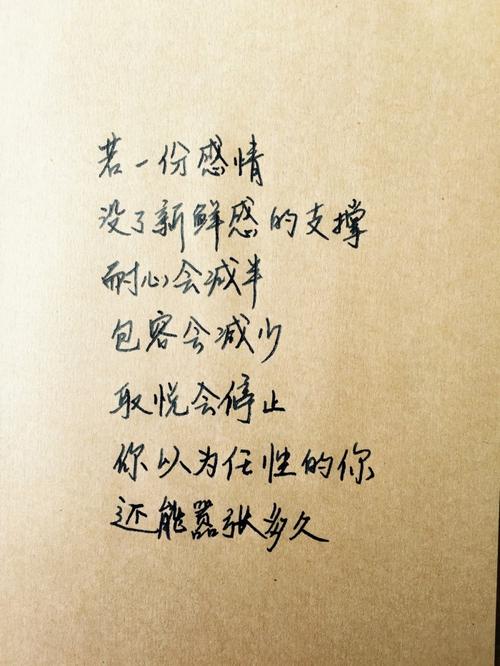 若一份感情
没了新鲜感的支撑
耐心会减半
包容会减少
取悦会停止
你以为任性的你
还能嚣张多久